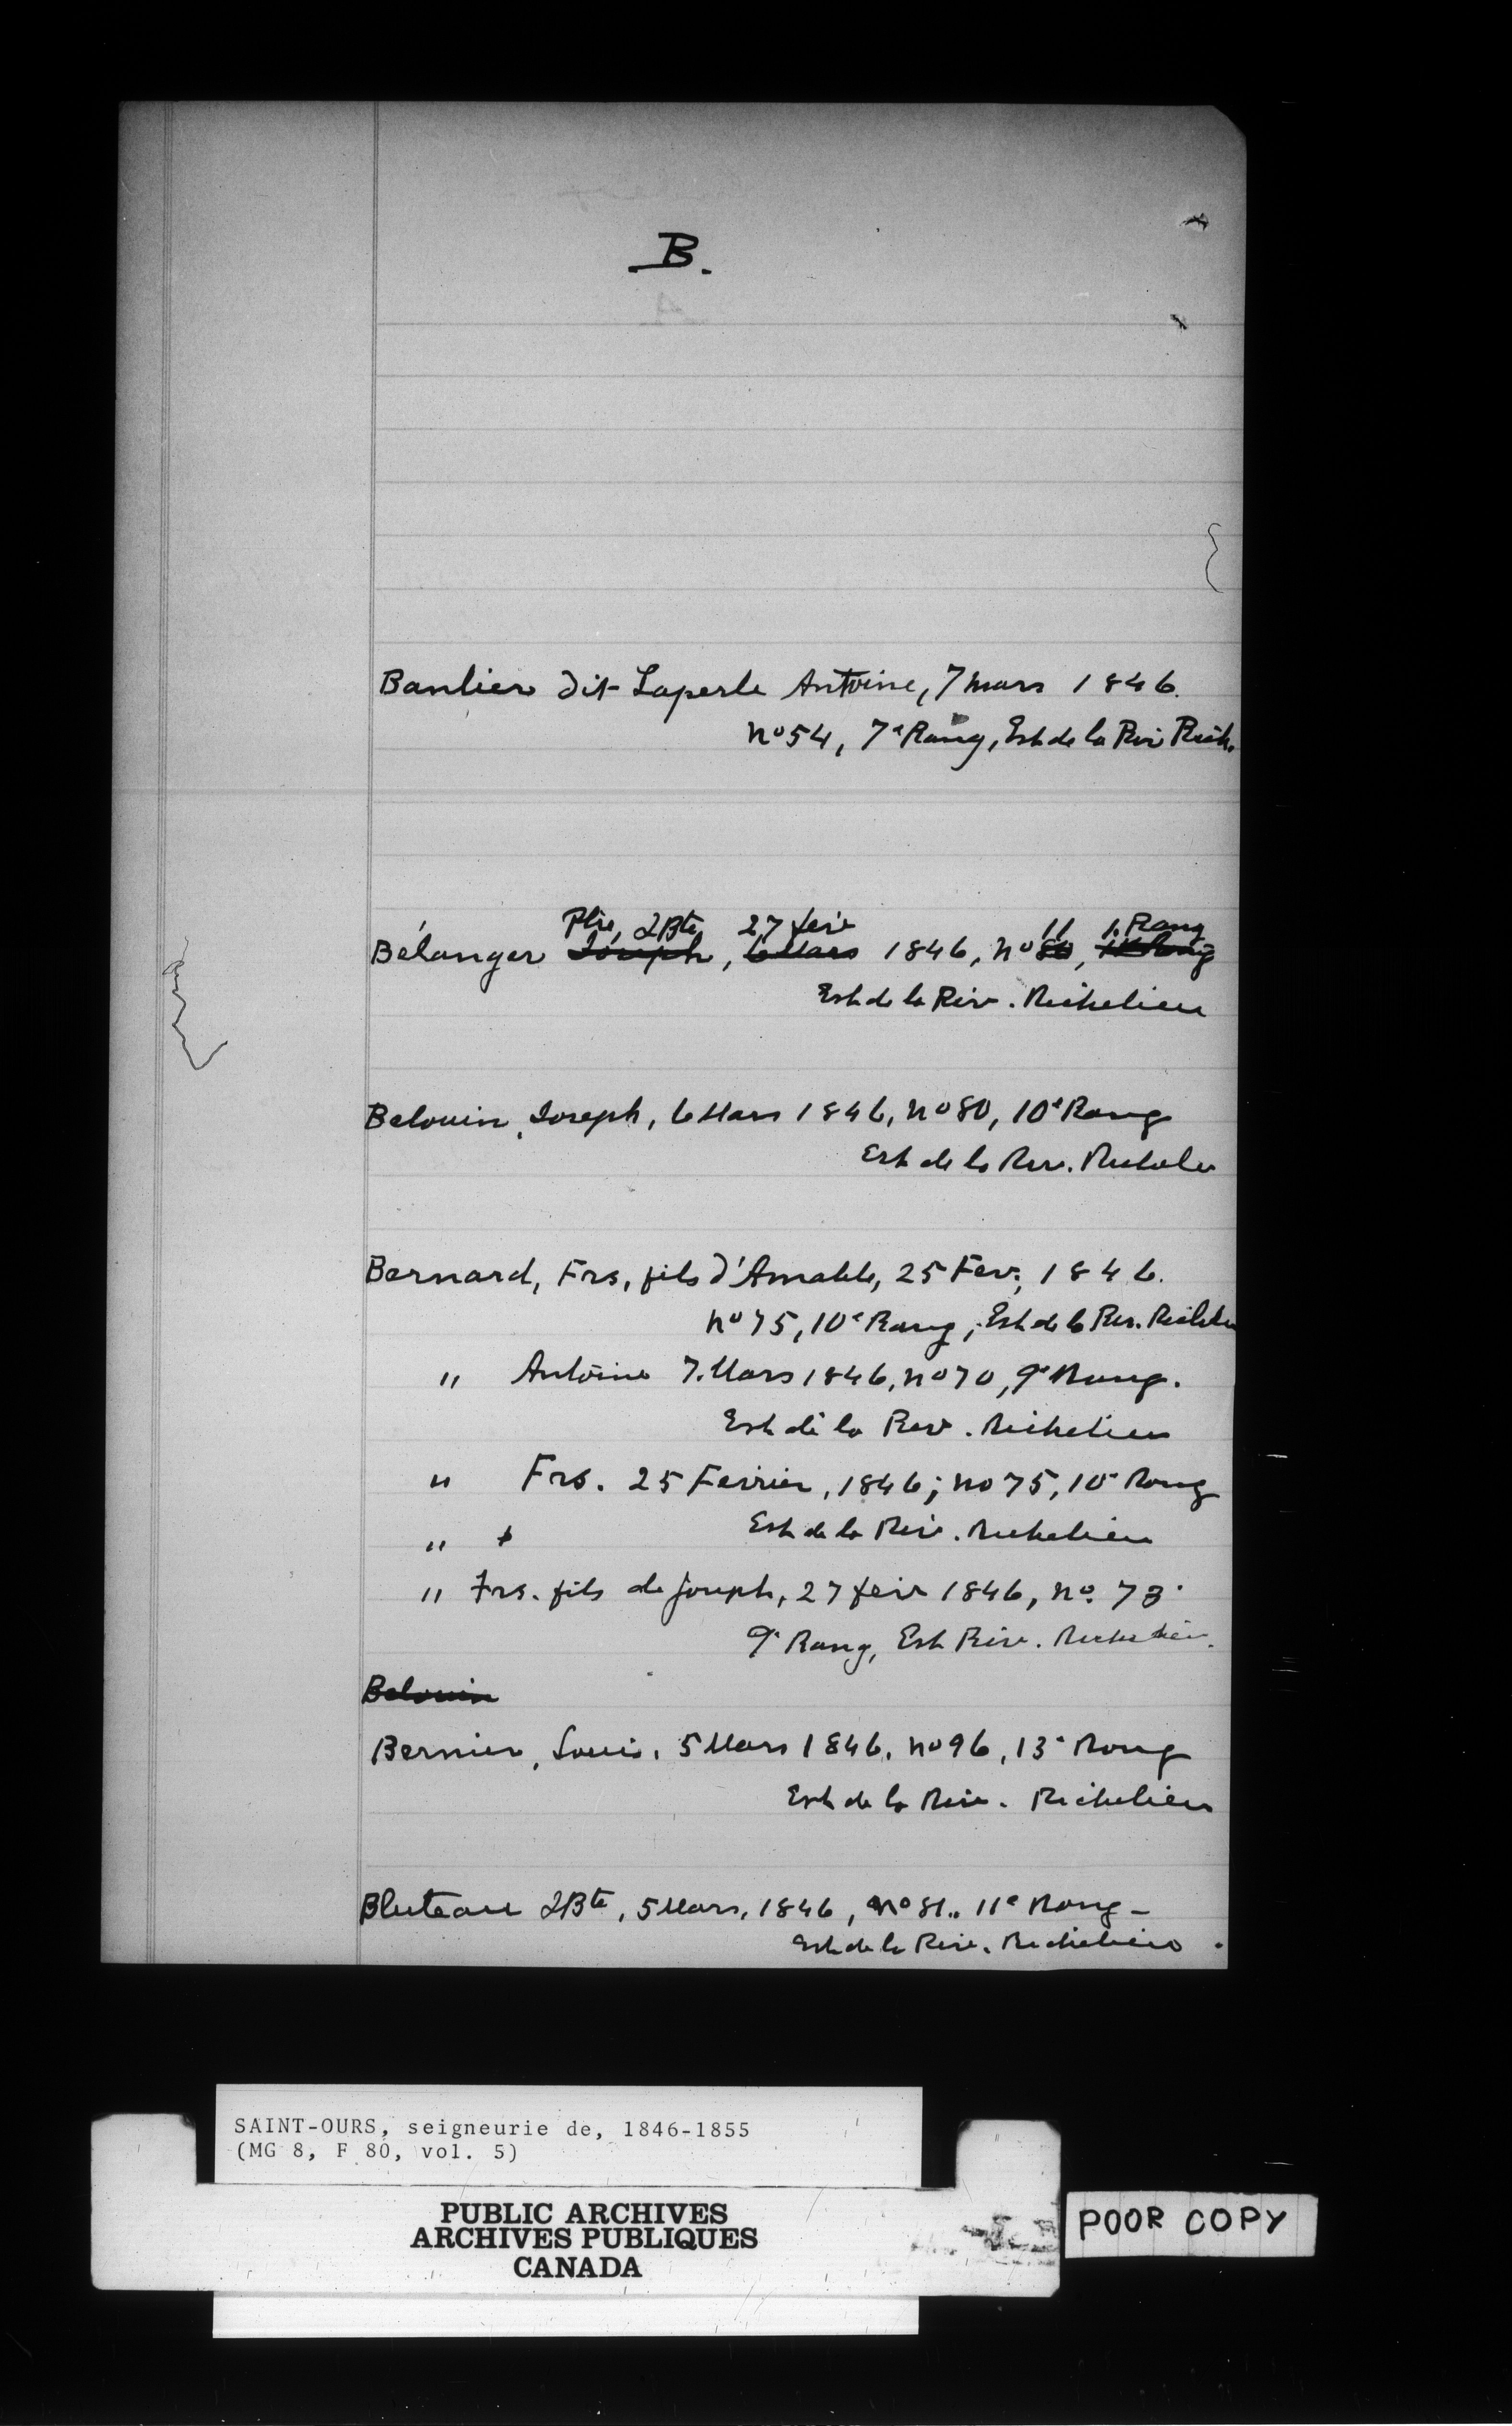 B.
Banlier dit Laperle Antoine, 7 mars 1846.
no 54, 7e Rang, Est de la Riv Rich.
Plre, JBte 27 fév 11 1. Rang
Bélanger Joseph, 6 Mars 1846, no 80, 10e Rang
Est de la Riv. Richelieu
Belouin, Joseph, 6 Mars 1846, no 80, 10e Rang
Est de la Riv. Richelieu
Bernard, Frs, fils d'Amable, 25 Fev, 1846.
no 75, 10e Rang, Est de la Riv. Richelieu
" Antoine 7. Mars 1846, no 70, 9e Rang.
Est de la Riv. Richelieu
" Frs. 25 Fevrier, 1846; no 75, 10e Rang
" Est de la Riv. Richelieu
" Frs. fils de Joseph, 27 fév 1846, no. 73
9e Rang, Est Riv. Richelieu.
Belouin
Bernier, Louis, 5 Mars 1846, no 96, 13e Rang
Est de la Riv. Richelieu
Bluteau JBte, 5 Mars, 1846, no 81.. 11e Rang -
Est de la Riv. Richelieu.
SAINT-OURS, seigneurie de, 1846-1855
(MG 8, F 80, vol. 5)
PUBLIC ARCHIVES
ARCHIVES PUBLIQUES
CANADA
POOR COPY